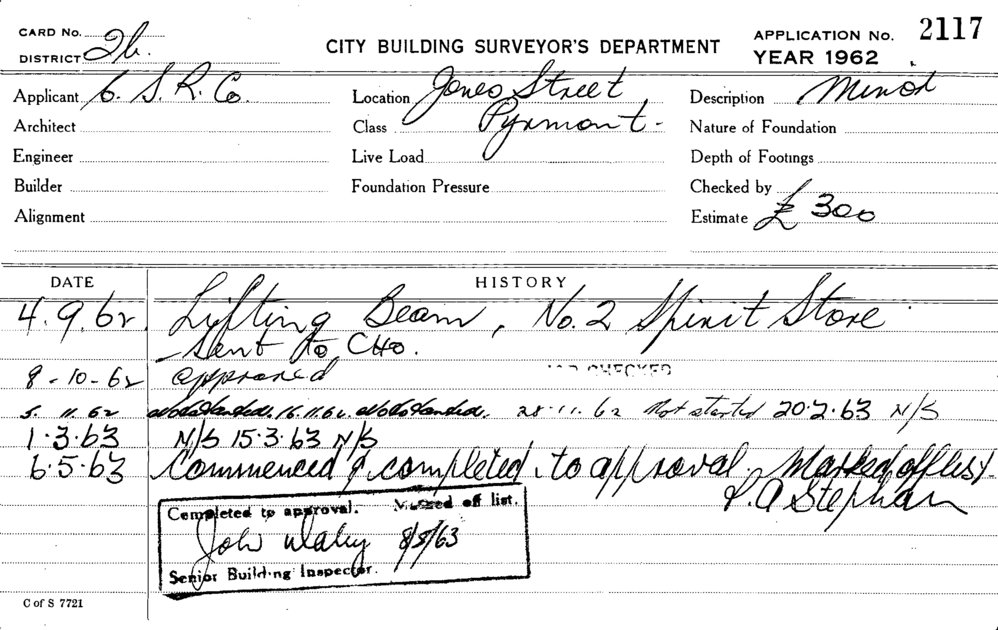 CARD No. 2b.
DISTRICT
CITY BUILDING SURVEYOR'S DEPARTMENT
APPLICATION No. 2117
YEAR 1962
Applicant C. S. R. Co. Location Jones Street Description Minor
Architect Class Pyrmont. Nature of Foundation
Engineer Live Load Depth of Footings
Builder Foundation Pressure Checked by
Alignment Estimate £ 300
DATE HISTORY
4.9.62. Lifting Beam, No. 2 Spirit Store
Sent to CHO.
8-10-62 approved CHECKED
5. 11.62 Not Started. 16.11.62. Not Started. 28.11.62 Not started 20.2.63 N/S
1.3.63 N/S 15.3.63 N/S
6.5.63 Commenced & completed to approval. Marked off list.
Completed to approval. Marked off list.
8/5/63
Senior Building Inspector.
C of S 7721